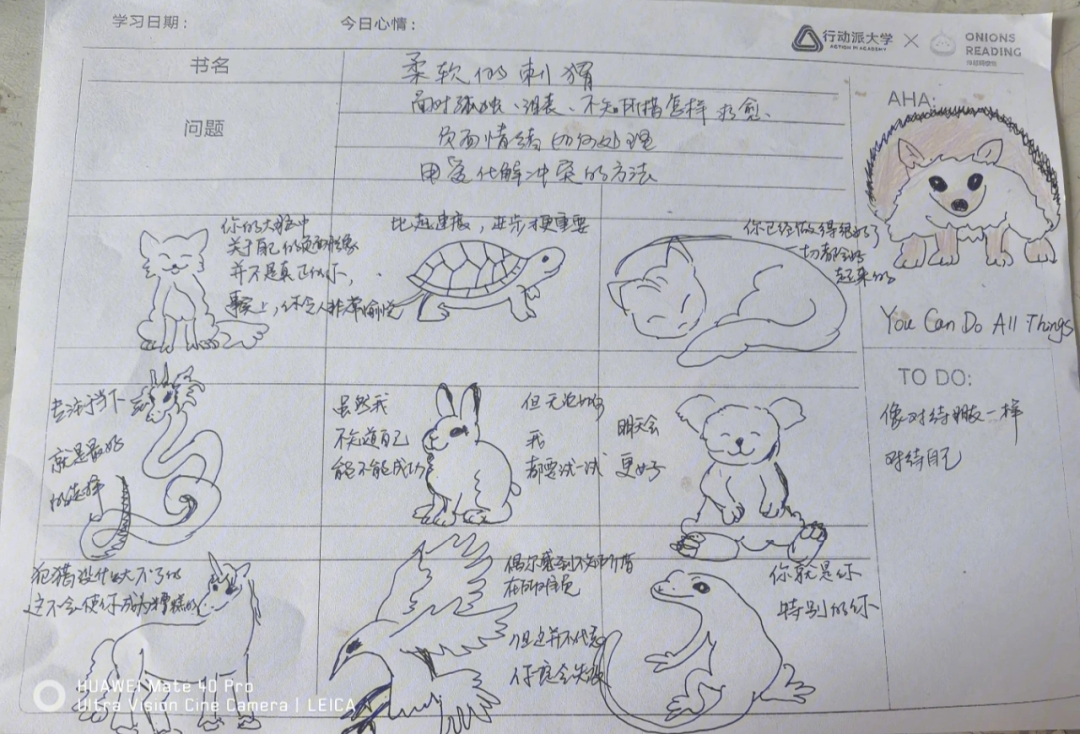 学习日期:
今日心情:
行动派大学
ACTION PI ACADEMY
×
ONIONS
READING
书名
柔软的刺猬
问题
面对孤独、沮丧、不知所措怎样疗愈、
负面情绪如何处理
用爱化解冲突的方法
AHA:
You Can Do All Things
TO DO:
像对待朋友一样
对待自己
你的大脑中
关于自己的负面想象
并不是真正的你,
事实上,你令人非常愉悦
比起速度,进步更重要
你已经做得很好了
一切都会好
起来的
专注于当下
就是最好
的选择
虽然我
不知道自己
能不能成功
但无论如何
我
都要试一试
明天会
更好
犯错没什么大不了的
这不会使你成为糟糕的
偶尔感到不知所措
在所难免
但这并不代表
你就会失败
你就是你
特别的你
HUAWEI Mate 40 Pro
Ultra Vision Cine Camera | LEICA